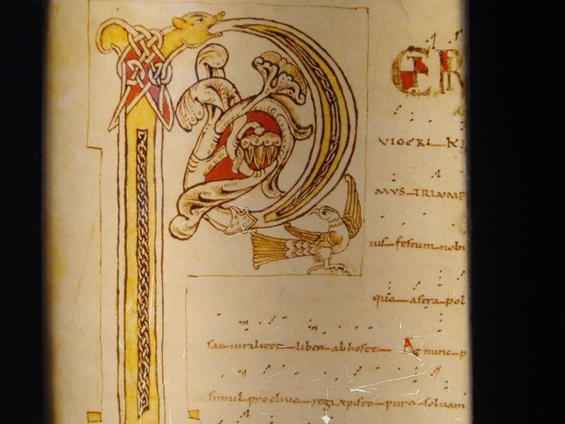 P ER
MVS TRIVMP
ius festum nobi
quo astra pol
uiriliter liber ab hoste Ac nunc p
simul procliuo regi xpisto pura soluam